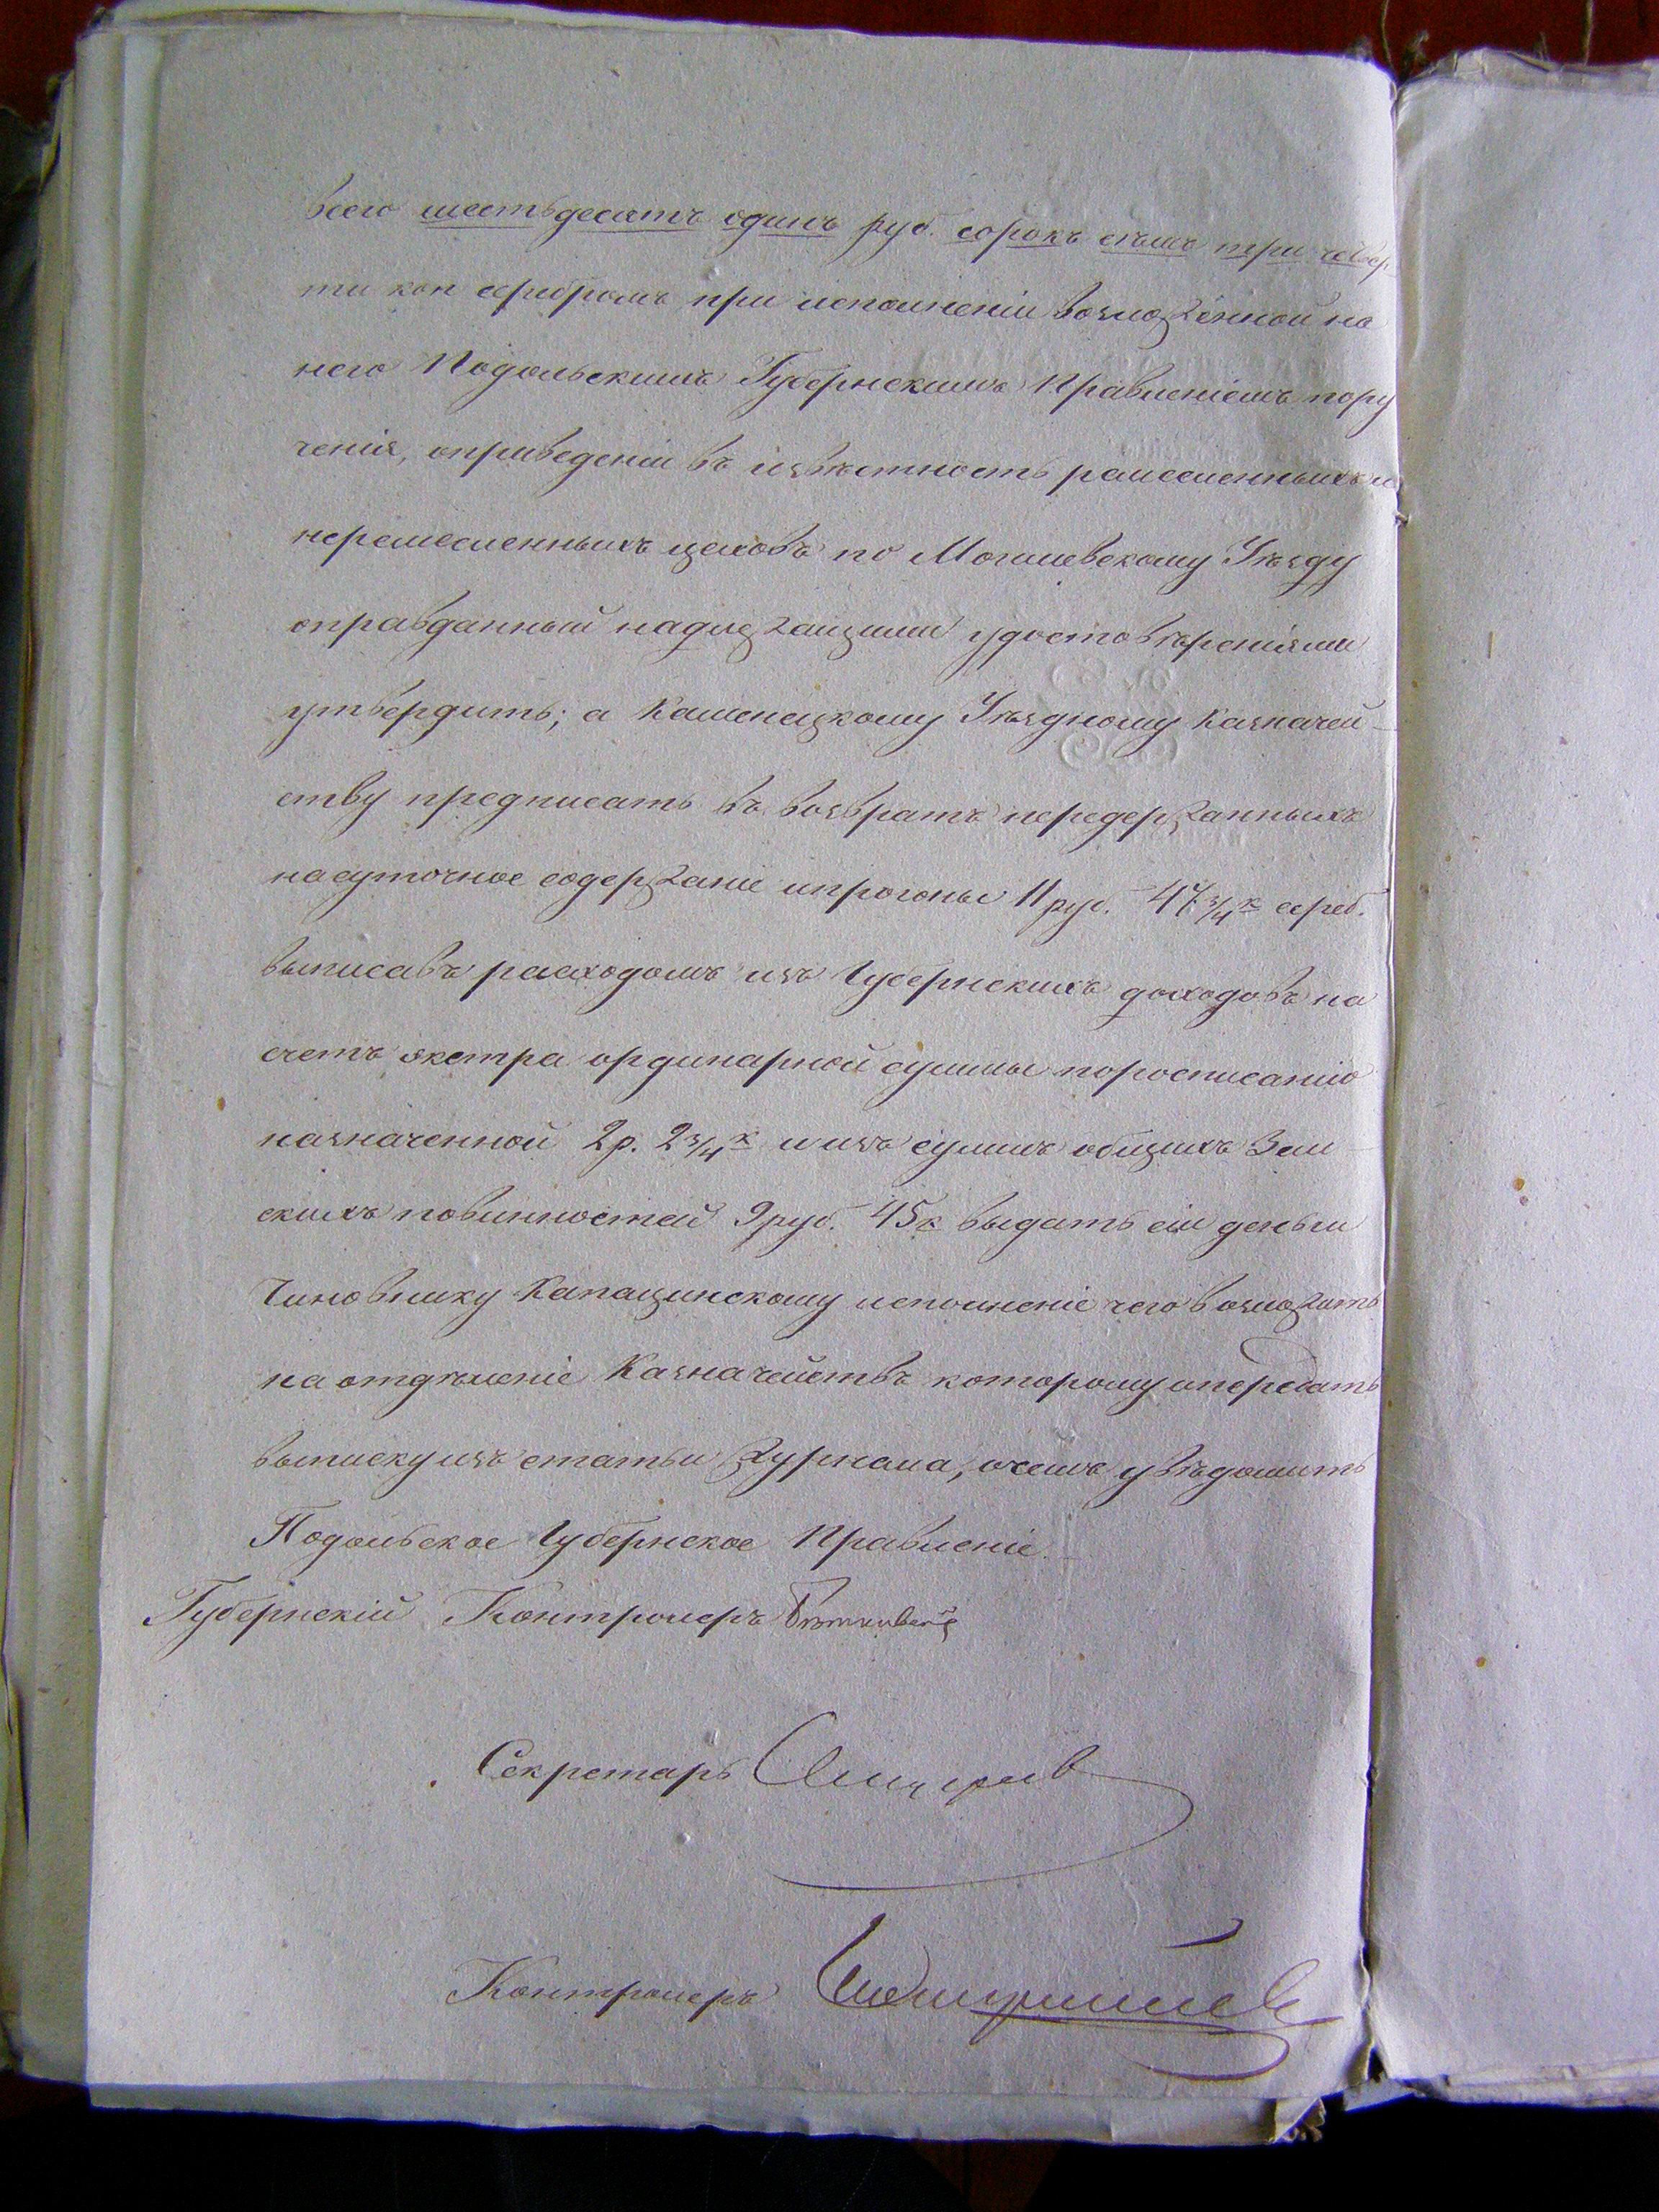 всего шестьдесятъ одинъ руб. сорокъ семь три четвер
ти коп серебромъ при исполненіи возложенной на
него Подольскимъ Губернскимъ Правленіемъ пору
ченія, оприведеніи въ извѣстность ремесленныхъ и
неремесленныхъ цеховъ по Могилевскому Уѣзду
оправданный надлежащими удостовѣреніями
утвердить; а Каменецкому Уѣздному Казначей-
ству предписать въ возвратъ передержанныхъ
насуточное содержаніе ипрогоны 11 руб. 47 3/4 к сереб.
выписавъ расходомъ изъ Губернскихъ доходовъ на
счетъ экстра ординарной суммы поросписанію
назначенной 2 р. 2 3/4 к и изъ суммъ общихъ Зем
скихъ повинностей 9 руб. 45 к выдать сіи деньги
Чиновнику Капацинскому исполненіе чего возложить
на отдѣленіе Казначействъ которому и передать
выписку изъ статьи журнала, очемъ увѣдомить
Подольское Губернское Правленіе.
Губернскій Контролеръ
Секретарь
Контролеръ